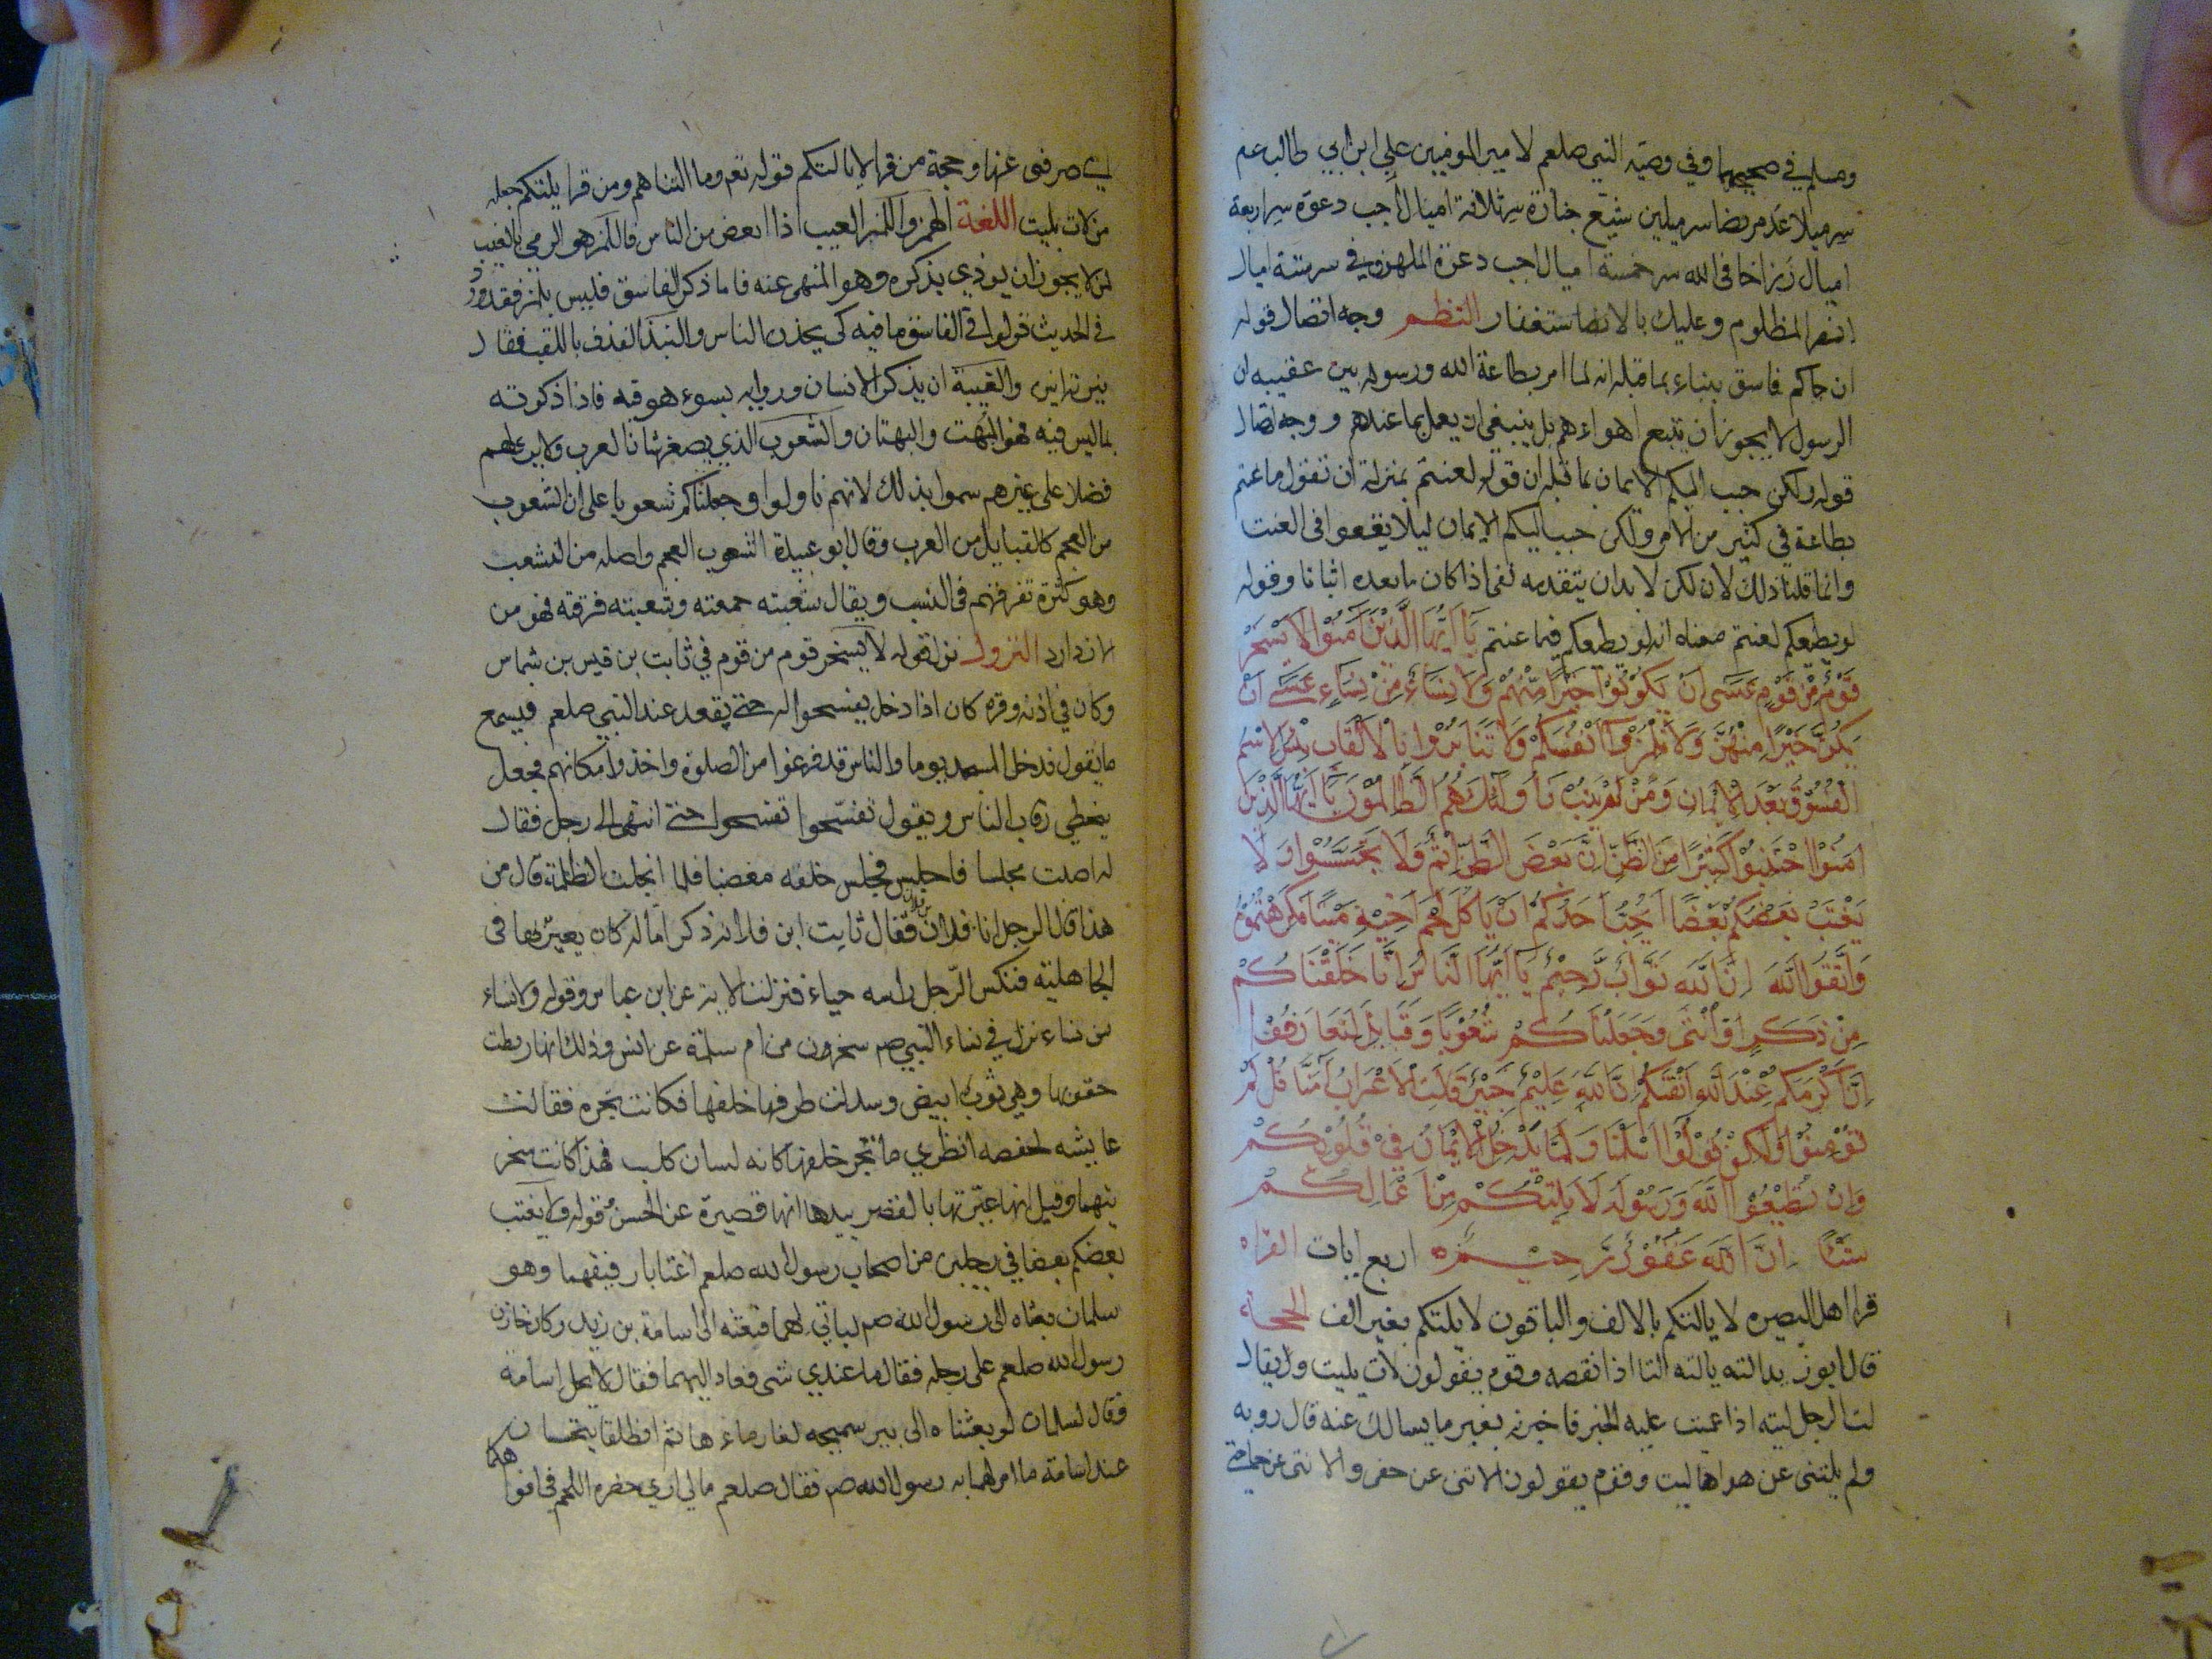 وصلم في صحيحهما وفي وصية النبي صلعم لامير المومنين علي ابن ابي طالب عم
سر ميلا عد مريضا سر ميلين شيع جنازة سر ثلاثة اميال اجب دعوة سر اربعة
اميال زر اخا في الله سر خمسة اميال اجب دعوة الملهوف في سر ستة اميال
انصر المظلوم وعليك بالاستغفار النظم وجه اتصال قوله
ان جاكم فاسق بنباء بما قبله انه لما امر بطاعة الله ورسوله بين عقيبه ان
الرسول لا يجوز ان يتبع اهواءهم بل ينبغي ان يعمل بما عندهم ووجه اتصال
قوله ولكن حبب اليكم الايمان بما قبله ان قوله لعنتم بمنزلة ان تقول ما عنتم
بطاعة في كثير من الامر ولكن حبب اليكم الايمان ليلا يقعوا في العنت
وانما قلنا ذلك لان لكن لا بد ان يتقدمه نفي اذا كان ما بعده اثباتا وقوله
لو يطيعكم لعنتم معناه انه لو يطيعكم فيما عنتم يَا اَيُّهَا الَّذِيْنَ اٰمَنُوْا لَا يَسْخَرْ
قَوْمٌ مِنْ قَوْمٍ عَسٰى اَنْ يَكُوْنُوْا خَيْرًا مِنْهُمْ وَلَا نِسَاءٌ مِنْ نِسَاءٍ عَسٰى اَنْ
يَكُنَّ خَيْرًا مِنْهُنَّ وَلَا تَلْمِزُوْا اَنْفُسَكُمْ وَلَا تَنَابَزُوْا بِالْاَلْقَابِ بِئْسَ الْاِسْمُ
الْفُسُوْقُ بَعْدَ الْاِيْمَانِ وَمَنْ لَمْ يَتُبْ فَاُولٰئِكَ هُمُ الظَّالِمُوْنَ يَا اَيُّهَا الَّذِيْنَ
اٰمَنُوْا اجْتَنِبُوْا كَثِيْرًا مِنَ الظَّنِّ اِنَّ بَعْضَ الظَّنِّ اِثْمٌ وَلَا تَجَسَّسُوْا وَلَا
يَغْتَبْ بَعْضُكُمْ بَعْضًا اَيُحِبُّ اَحَدُكُمْ اَنْ يَاْكُلَ لَحْمَ اَخِيْهِ مَيْتًا فَكَرِهْتُمُوْهُ
وَاتَّقُوا اللّٰهَ اِنَّ اللّٰهَ تَوَّابٌ رَحِيْمٌ يَا اَيُّهَا النَّاسُ اِنَّا خَلَقْنَاكُمْ
مِنْ ذَكَرٍ وَاُنْثٰى وَجَعَلْنَاكُمْ شُعُوْبًا وَقَبَائِلَ لِتَعَارَفُوْا
اِنَّ اَكْرَمَكُمْ عِنْدَ اللّٰهِ اَتْقٰكُمْ اِنَّ اللّٰهَ عَلِيْمٌ خَبِيْرٌ قَالَتِ الْاَعْرَابُ اٰمَنَّا قُلْ لَمْ
تُؤْمِنُوْا وَلٰكِنْ قُوْلُوْا اَسْلَمْنَا وَلَمَّا يَدْخُلِ الْاِيْمَانُ فِيْ قُلُوْبِكُمْ
وَاِنْ تُطِيْعُوا اللّٰهَ وَرَسُوْلَهُ لَا يَلِتْكُمْ مِنْ اَعْمَالِكُمْ
شَيْئًا اِنَّ اللّٰهَ غَفُوْرٌ رَحِيْمٌ اربع ايات القراه
قرا اهل البصره لا يالتكم بالالف والباقون لا يلتكم بغير الف الحجة
قال ابو زيد التة يالته التا اذا نقصه وقوم يقولون لات يليت ويقال
لت الرجل ليته اذا عميت عليه الخبر فاخبرته بغير ما يسالك عنه قال روبه
ولم يلتني عن هواها ليت وقوم يقولون الاتني عن حقي والاتني عن حاجتي
اي صرفني عنها وحجة من قرا لا يالتكم قوله تع وما التناهم ومن قرا يلتكم جعله
من لات يليت اللغة الهمز واللمز العيب اذا العض من الناس فاللمز هو الرمي بالعيب
لمن لا يجوز ان يوذي بذكره وهو المنهي عنه فاما ذكر الفاسق فليس بلمز فقد ورد
في الحديث قولوا في الفاسق ما فيه كي يحذره الناس والنبذ القذف باللقب فقال
والغيبة ان يذكر الانسان من ورايه بسوء هو فيه فاذا ذكرته
بما ليس فيه فهو البهت والبهتان والشعوب الذي يصغر شان العرب ولا يرى لهم
فضلا على غيرهم سموا بذلك لانهم تاولوا وجعلناكم شعوبا على ان الشعوب
من العجم كالقبايل من العرب وقال ابو عبيدة الشعوب العجم واصله من التشعب
وهو كثرة تفرقهم في النسب ويقال شعبته جمعته وشعبته فرقته فهو من
الاضداد النزول نزل قوله لا يسخر قوم من قوم في ثابت بن قيس بن شماس
وكان في اذنه وقره كان اذا دخل يفسحوا له حتى يقعد عند النبي صلعم فيسمع
ما يقول فدخل المسجد يوما والناس قد فرغوا من الصلوة واخذوا مكانهم فجعل
يتخطي رقاب الناس ويقول تفسّحوا تفسحوا حتى انتهى الى رجل فقال
له اصبت مجلسا فاجلس فجلس خلفه مغضبا فلما انجلت الظلمة قال من
هذا قال الرجل انا فلان فقال ثابت ابن فلانة ذكر امّا له كان يعير بها في
الجاهلية فنكس الرّجل راسه حياء فنزلت الاية عن ابن عباس وقوله ولا نساء
من نساء نزل في نساء النبي صم سخرون من ام سلمة عن انس وذلك انها ربطت
حقويها وهي ثوب ابيض وسدلت طرفها خلفها فكانت تجره فقالت
عايشه لحفصه انظري ما تجر خلفها كانه لسان كلب فهذا كانت سخر
يتهما وقيل انها عيّرتها بالقصر بيدها انها قصيرة عن الحسن قوله ولا يغتب
بعضكم بعضا في رجلين من اصحاب رسول الله صلعم اغتابا رفيقهما وهو
سلمان بعثاه الى رسول الله صم لياتي لهما فبعثه الى اسامة بن زيد وكان خازن
رسول الله صلعم على رحله فقال ما عندي شي فعاد اليهما فقالا بخل اسامة
وقال لسلمان لو بعثناه الى بير سميحه لغار ماءها ثم انطلقا يتجسسان
عند اسامة ما امر لهما به رسول الله صم فقال صلعم ما لي اري خضره اللحم في افواهكما